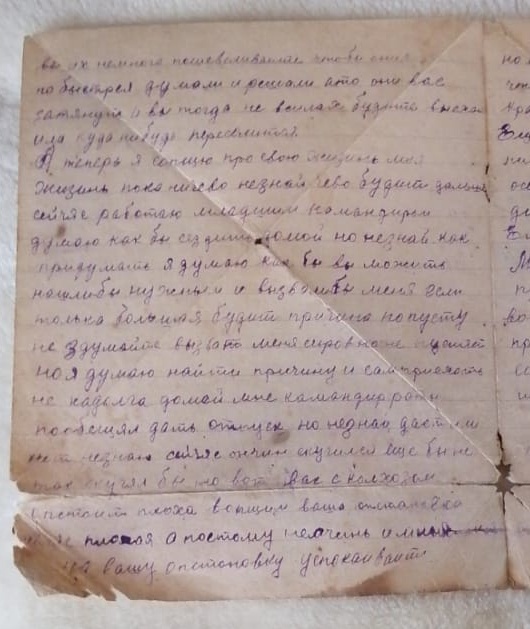 вы их немного пошевеливайте чтобы они
побыстрея думали и решали ато они вас
затянут и вы тогда не всилах будите выеха
или куда нибудь переселится.
А теперь я сопщю про свою жизнь моя
жизнь пока ничево незнай чево будит дальше
сейчяс работаю младшим командиром
думаю как бы сездить домой но незнай как
придумать я думаю как бы вы можить
нашлибы нужным и вызвалибы меня если
только большая будит причина попусту
не здумайте вызват меня сировно не
но я думаю найти причину и сам приехать
не надолга домой мне командир роты
пообещял дать отпуск но незнаю даст или
нет незнаю сейчяс очинь скучился еще бы не
так скучял бы но вот вас с колхозом
опстоит плоха вопщим ваша опстановка
плохая а поетому не очень и
вашу опстоновку успокаивайти
но
что
Кра
Е
М